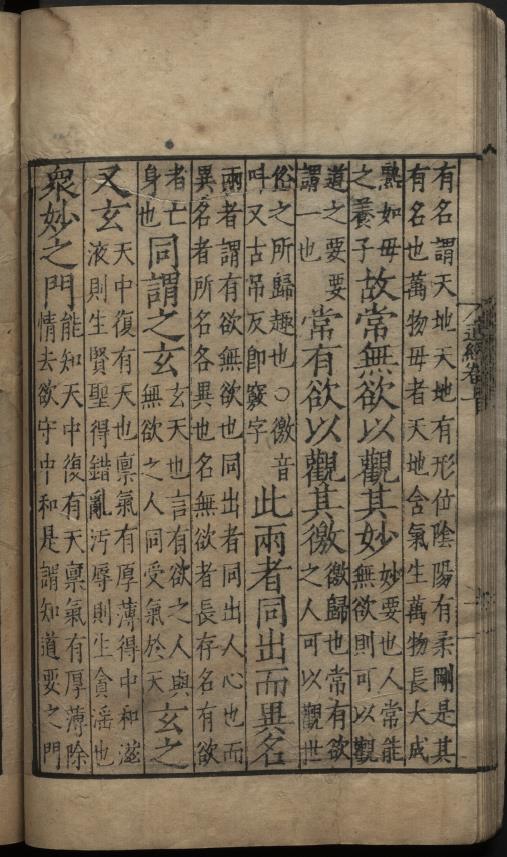 有名謂天地天地有形位陰陽有柔剛是其
有名也萬物毋者天地含氣生萬物長大成
熟如毋之養子故常無欲以觀其妙妙要也人常能無欲則可以觀
道之要要謂一也常有欲以觀其徼徼歸也常有欲之人可以觀世
俗之所歸趣也○徼音呌又古吊反即竅字此兩者同出而異名
兩者謂有欲無欲也同出者同出人心也而
異名者所名各異也名無欲者長存名有欲
者亡身也同謂之玄玄天也言有欲之人與無欲之人同受氣於天玄之
又玄天中復有天也稟氣有厚薄得中和滋液則生賢聖得錯亂汚辱則生貪滛也
衆妙之門能知天中復有天稟氣有厚薄除情去欲守中和是謂知道要之門